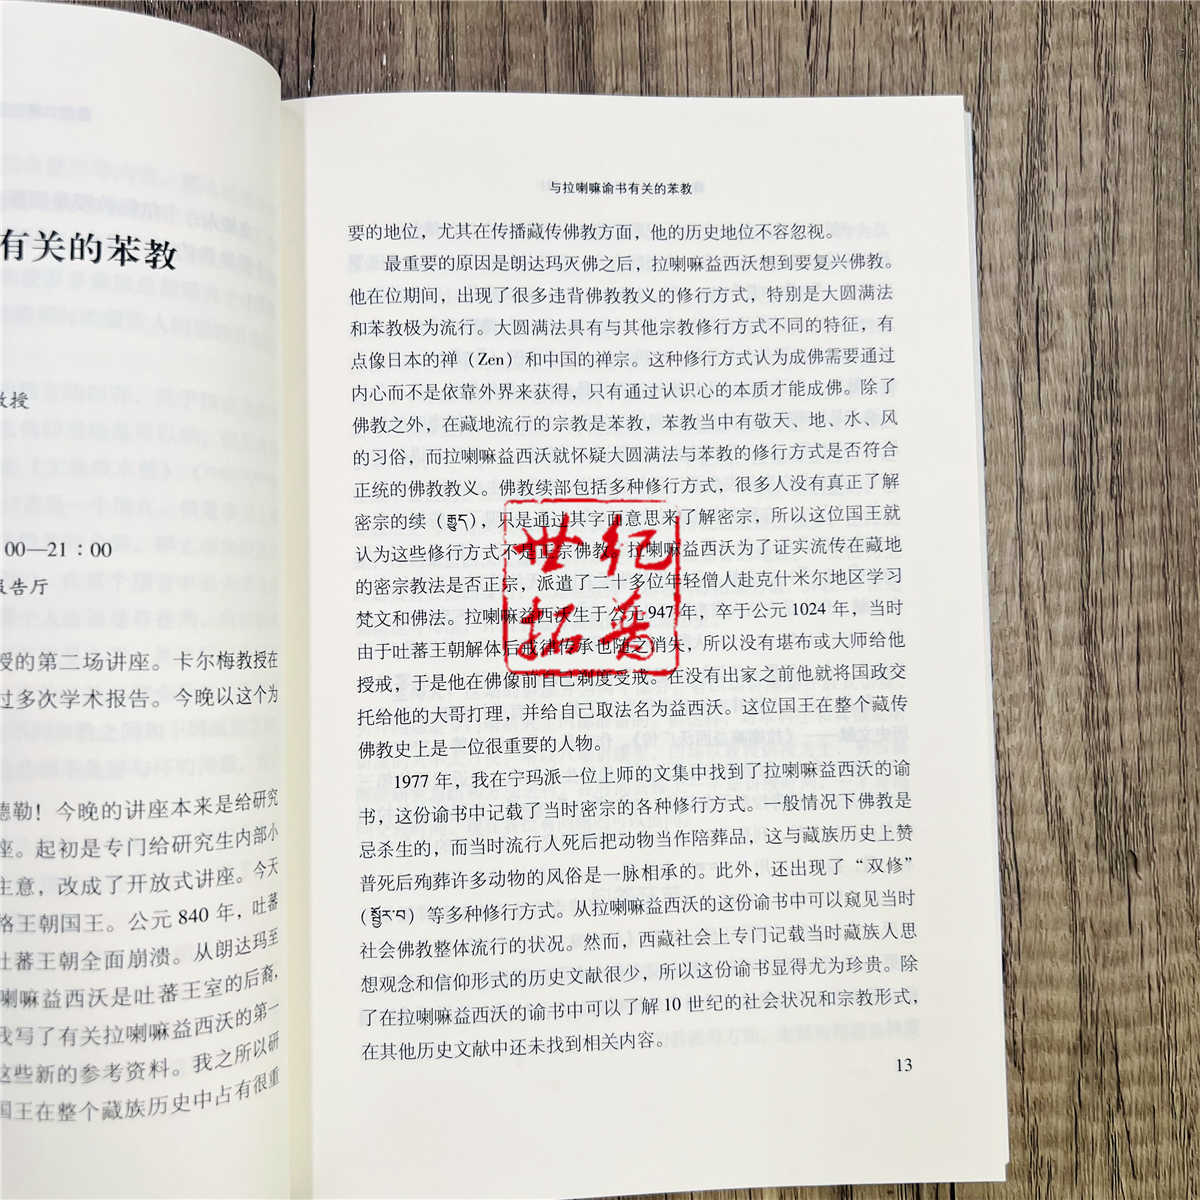 有关的苯教
教授
00—21：00
报告厅
授的第二场讲座。卡尔梅教授在
过多次学术报告。今晚以这个为
德勒！今晚的讲座本来是给研究
座。起初是专门给研究生内部小
主意，改成了开放式讲座。今天
格王朝国王。公元 840 年，吐蕃
吐蕃王朝全面崩溃。从朗达玛至
喇嘛益西沃是吐蕃王室的后裔，
我写了有关拉喇嘛益西沃的第一
这些新的参考资料。我之所以研
国王在整个藏族历史中占有很重
与拉喇嘛谕书有关的苯教
要的地位，尤其在传播藏传佛教方面，他的历史地位不容忽视。
最重要的原因是朗达玛灭佛之后，拉喇嘛益西沃想到要复兴佛教。
他在位期间，出现了很多违背佛教教义的修行方式，特别是大圆满法
和苯教极为流行。大圆满法具有与其他宗教修行方式不同的特征，有
点像日本的禅（Zen）和中国的禅宗。这种修行方式认为成佛需要通过
内心而不是依靠外界来获得，只有通过认识心的本质才能成佛。除了
佛教之外，在藏地流行的宗教是苯教，苯教当中有敬天、地、水、风
的习俗，而拉喇嘛益西沃就怀疑大圆满法与苯教的修行方式是否符合
正统的佛教教义。佛教续部包括多种修行方式，很多人没有真正了解
密宗的续（རྒྱུད），只是通过其字面意思来了解密宗，所以这位国王就
认为这些修行方式不是正宗佛教。拉喇嘛益西沃为了证实流传在藏地
的密宗教法是否正宗，派遣了二十多位年轻僧人赴克什米尔地区学习
梵文和佛法。拉喇嘛益西沃生于公元 947 年，卒于公元 1024 年，当时
由于吐蕃王朝解体后戒律传承也随之消失，所以没有堪布或大师给他
授戒，于是他在佛像前自己剃度受戒。在没有出家之前他就将国政交
托给他的大哥打理，并给自己取法名为益西沃。这位国王在整个藏传
佛教史上是一位很重要的人物。
1977 年，我在宁玛派一位上师的文集中找到了拉喇嘛益西沃的谕
书，这份谕书中记载了当时密宗的各种修行方式。一般情况下佛教是
忌杀生的，而当时流行人死后把动物当作陪葬品，这与藏族历史上赞
普死后殉葬许多动物的风俗是一脉相承的。此外，还出现了“双修”
（སྦྱོར་བ）等多种修行方式。从拉喇嘛益西沃的这份谕书中可以窥见当时
社会佛教整体流行的状况。然而，西藏社会上专门记载当时藏族人思
想观念和信仰形式的历史文献很少，所以这份谕书显得尤为珍贵。除
了在拉喇嘛益西沃的谕书中可以了解 10 世纪的社会状况和宗教形式，
在其他历史文献中还未找到相关内容。
13
世纪
拓普